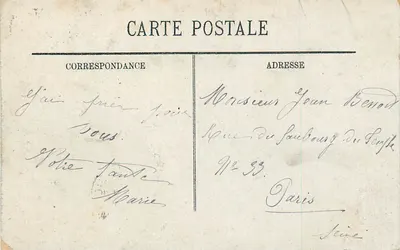 CARTE POSTALE
CORRESPONDANCE
ADRESSE
J'ai prié pour
vous.
Votre tante
Marie
Monsieur Jean Benoit
Rue du Faubourg du Temple
No 33
Paris
Seine